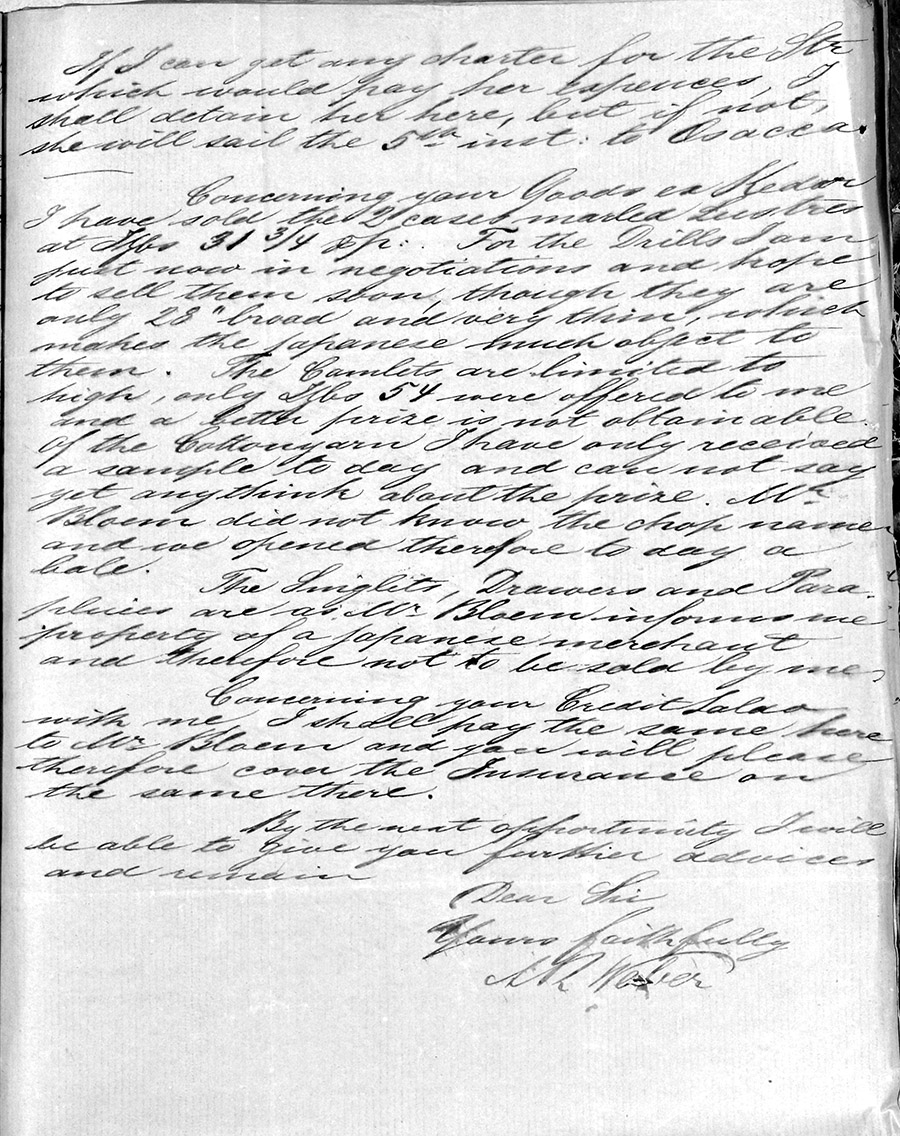 If I can get any charter for the Str
which would pay her expences, I
shall detain her here, but if not,
she will sail the 5th inst: to Osacca.
Concerning your Goods ex Medor
I have sold the 2 cases marked Lustres
at Itzbs 31 3/4 pp:. For the Drills I am
just now in negotiations and hope
to sell them soon, though they are
only 28" broad and very thin, which
makes the japanese much object to
them. The Camlets are limited to
high, only Itzbs 54 were offered to me
and a better prize is not obtainable.
Of the Cottonyarn I have only received
a sample to day and can not say
yet anythink about the prize. Mr
Bloem did not know the chop name
and we opened therefore to day a
bale.
The Singlets, Drawers and Para-
pluies are as Mr Bloem informs me
property of a japanese merchant
and therefore not to be sold by me,
Concerning your Credit Saldo
with me, I shall pay the same here
to Mr Bloem and you will please
therefore cover the Insurance on
the same there.
By the next opportunity I will
be able to give you further advices
and remain
Dear Sir
Yours faithfully
Weber